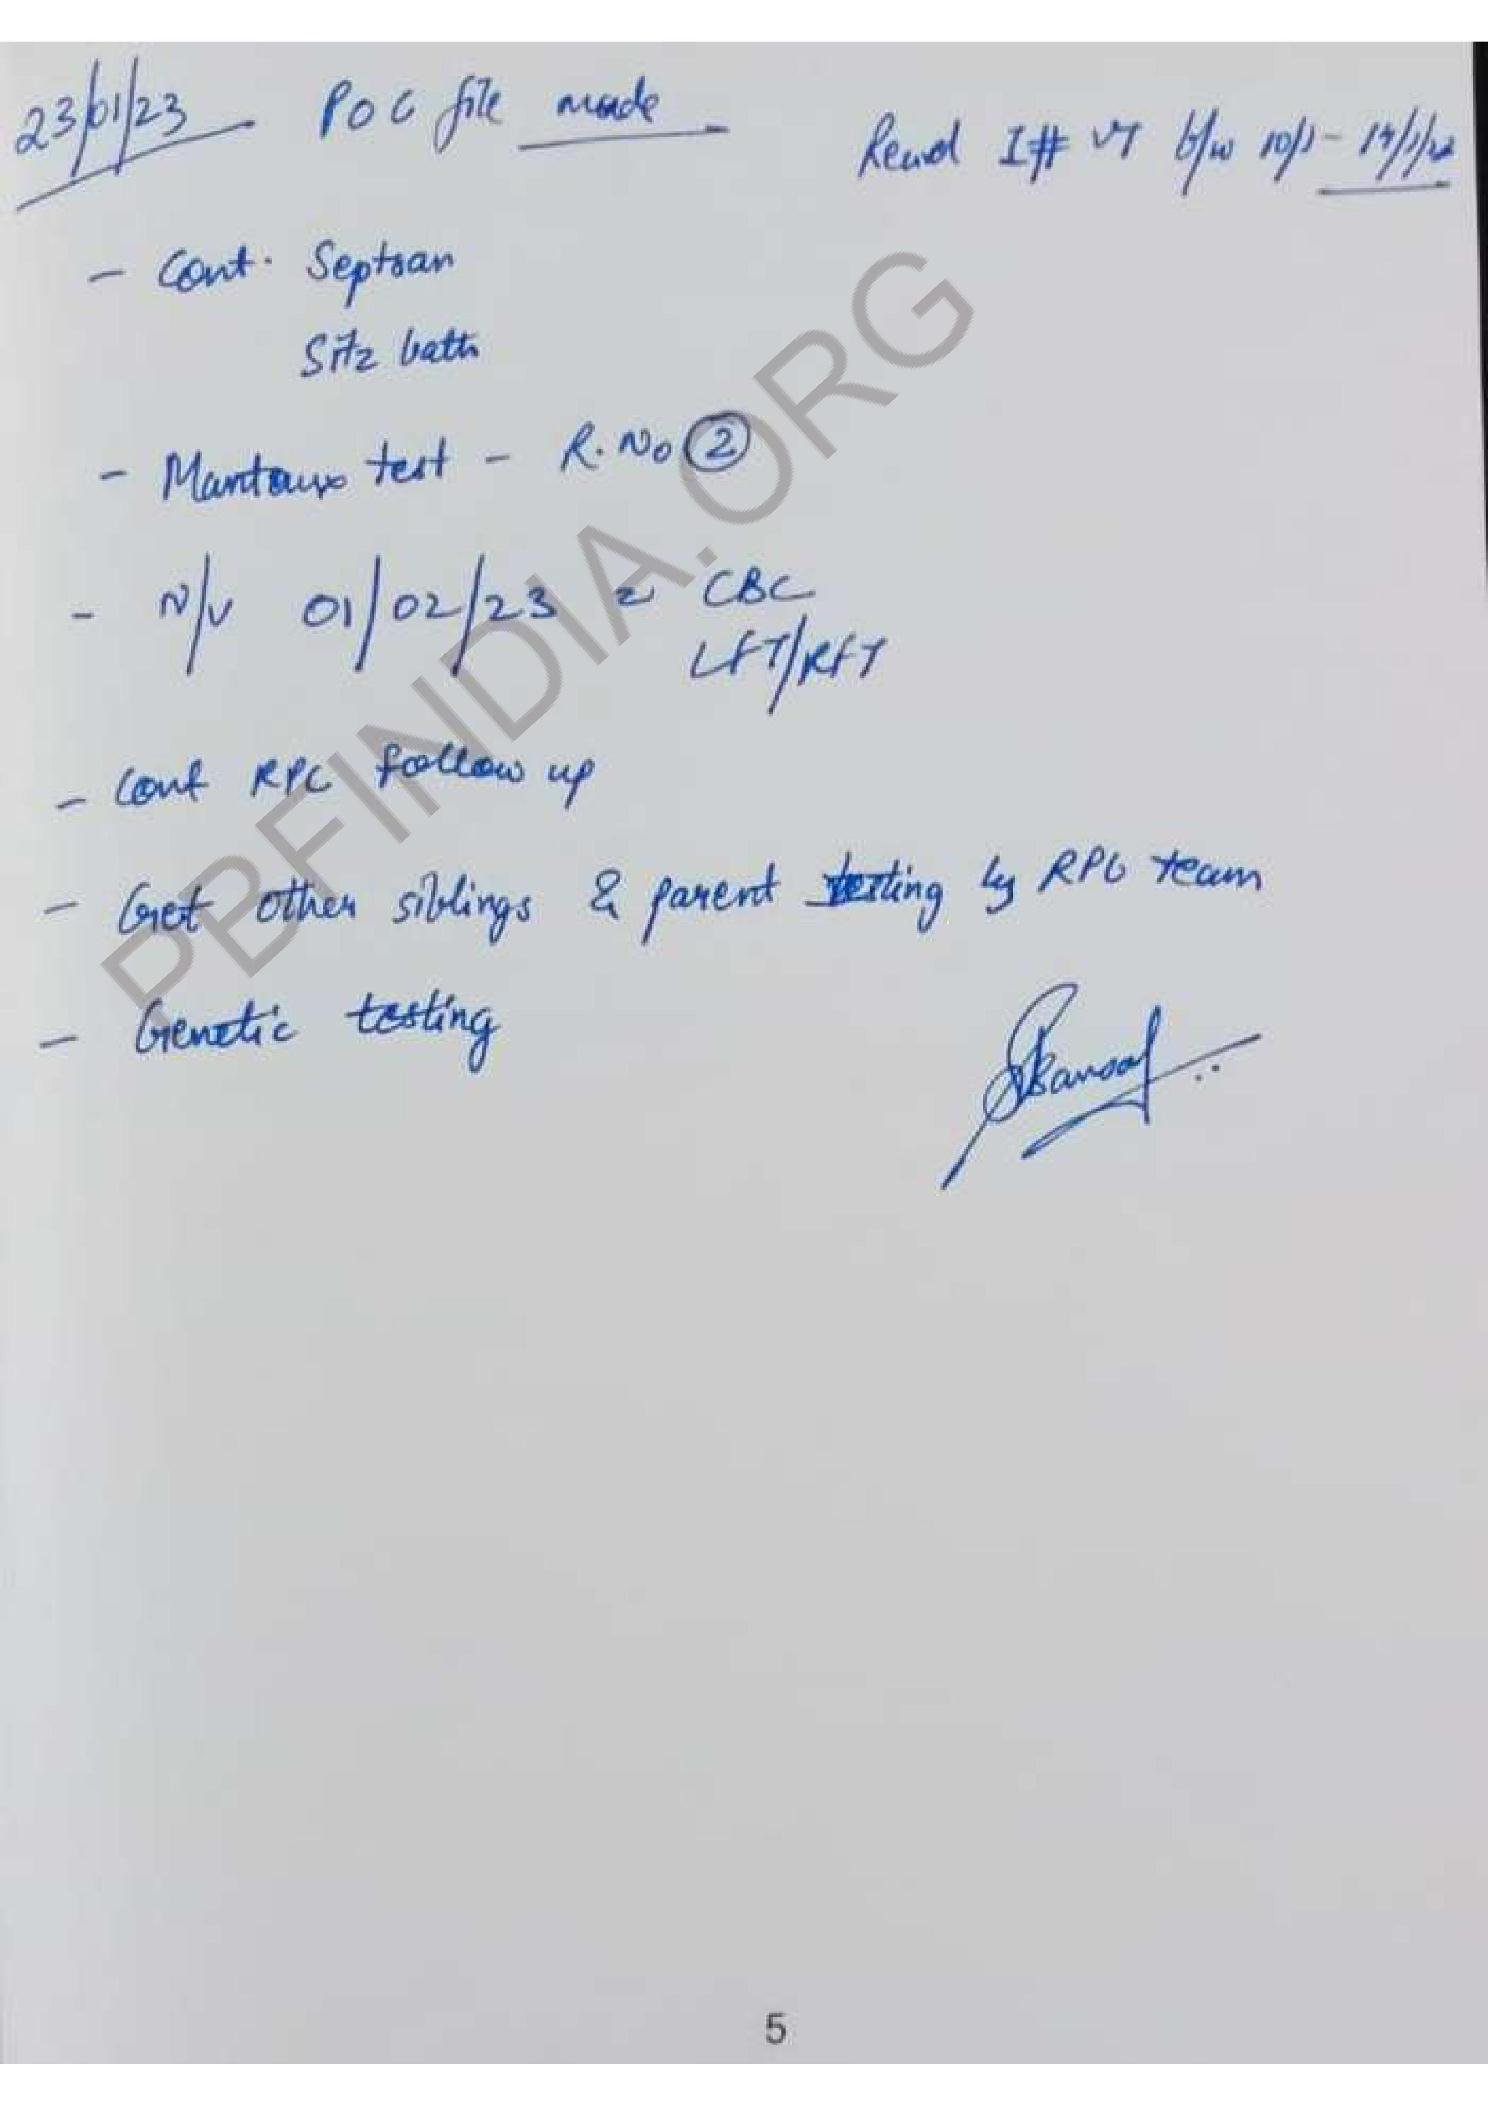 23/01/23 POC file made
Recvd I# VT b/w 10/1 - 14/1/
- Cont. Septran
Sitz bath
- Mantoux test - R. No 2
- N/V 01/02/23 CBC
LFT/RFT
- Cont RPC follow up
- Get other siblings & parent testing by RPC team
- Genetic testing
Bansal
PBFINDIA.ORG
5